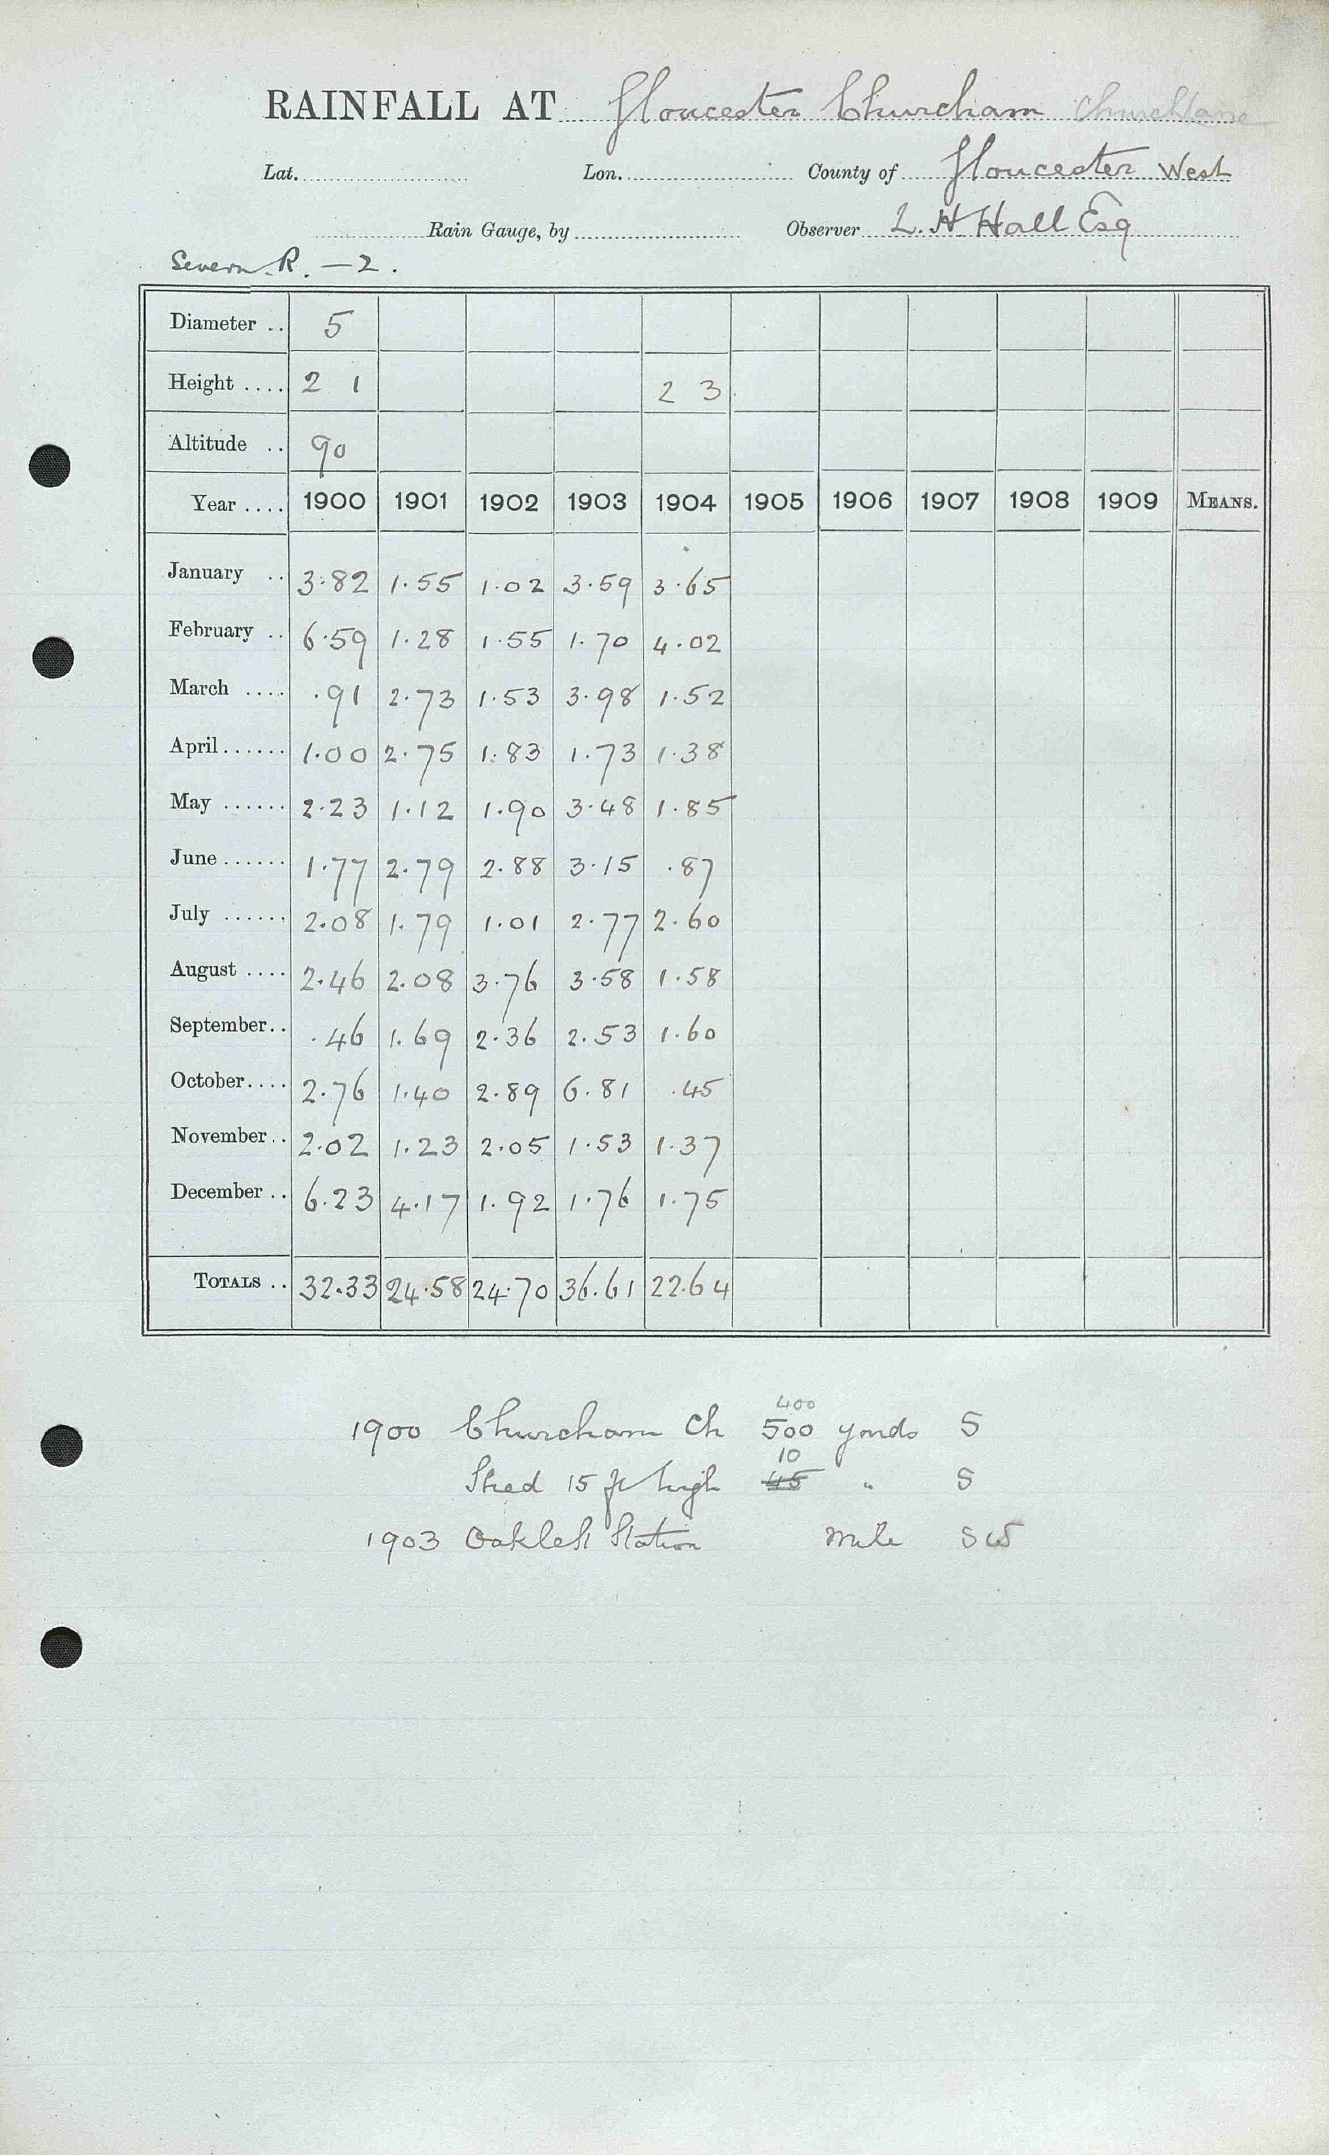 RAINFALL AT Gloucester Churcham Church Lane
Lat. Lon. County of Gloucester West
Rain Gauge, by Observer L. H Hall Esq
Severn. R. - 2.
Diameter .. 5
Height .... 2 1 2 3
Altitude .. 90
Year .... 1900 1901 1902 1903 1904 1905 1906 1907 1908 1909 MEANS.
January .. 3.82 1.55 1.02 3.59 3.65
February .. 6.59 1.28 1.55 1.70 4.02
March .... .91 2.73 1.53 3.98 1.52
April...... 1.00 2.75 1.83 1.73 1.38
May ...... 2.23 1.12 1.90 3.48 1.85
June...... 1.77 2.79 2.88 3.15 .87
July ...... 2.08 1.79 1.01 2.77 2.60
August .... 2.46 2.08 3.76 3.58 1.58
September.. .46 1.69 2.36 2.53 1.60
October.... 2.76 1.40 2.89 6.81 .45
November.. 2.02 1.23 2.05 1.53 1.37
December .. 6.23 4.17 1.92 1.76 1.75
TOTALS .. 32.33 24.58 24.70 36.61 22.64
400
1900 Churcham Ch 500 yards S
10
Shed 15 ft high 45 " S
1903 Oakle St Station mile SW